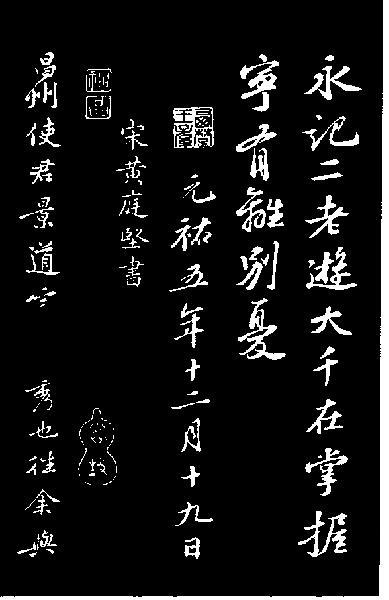 永記二老遊大千在掌握
寧有離別憂
元祐五年十二月十九日
宋黃庭堅書
昌州使君景道宗
秀也往余與